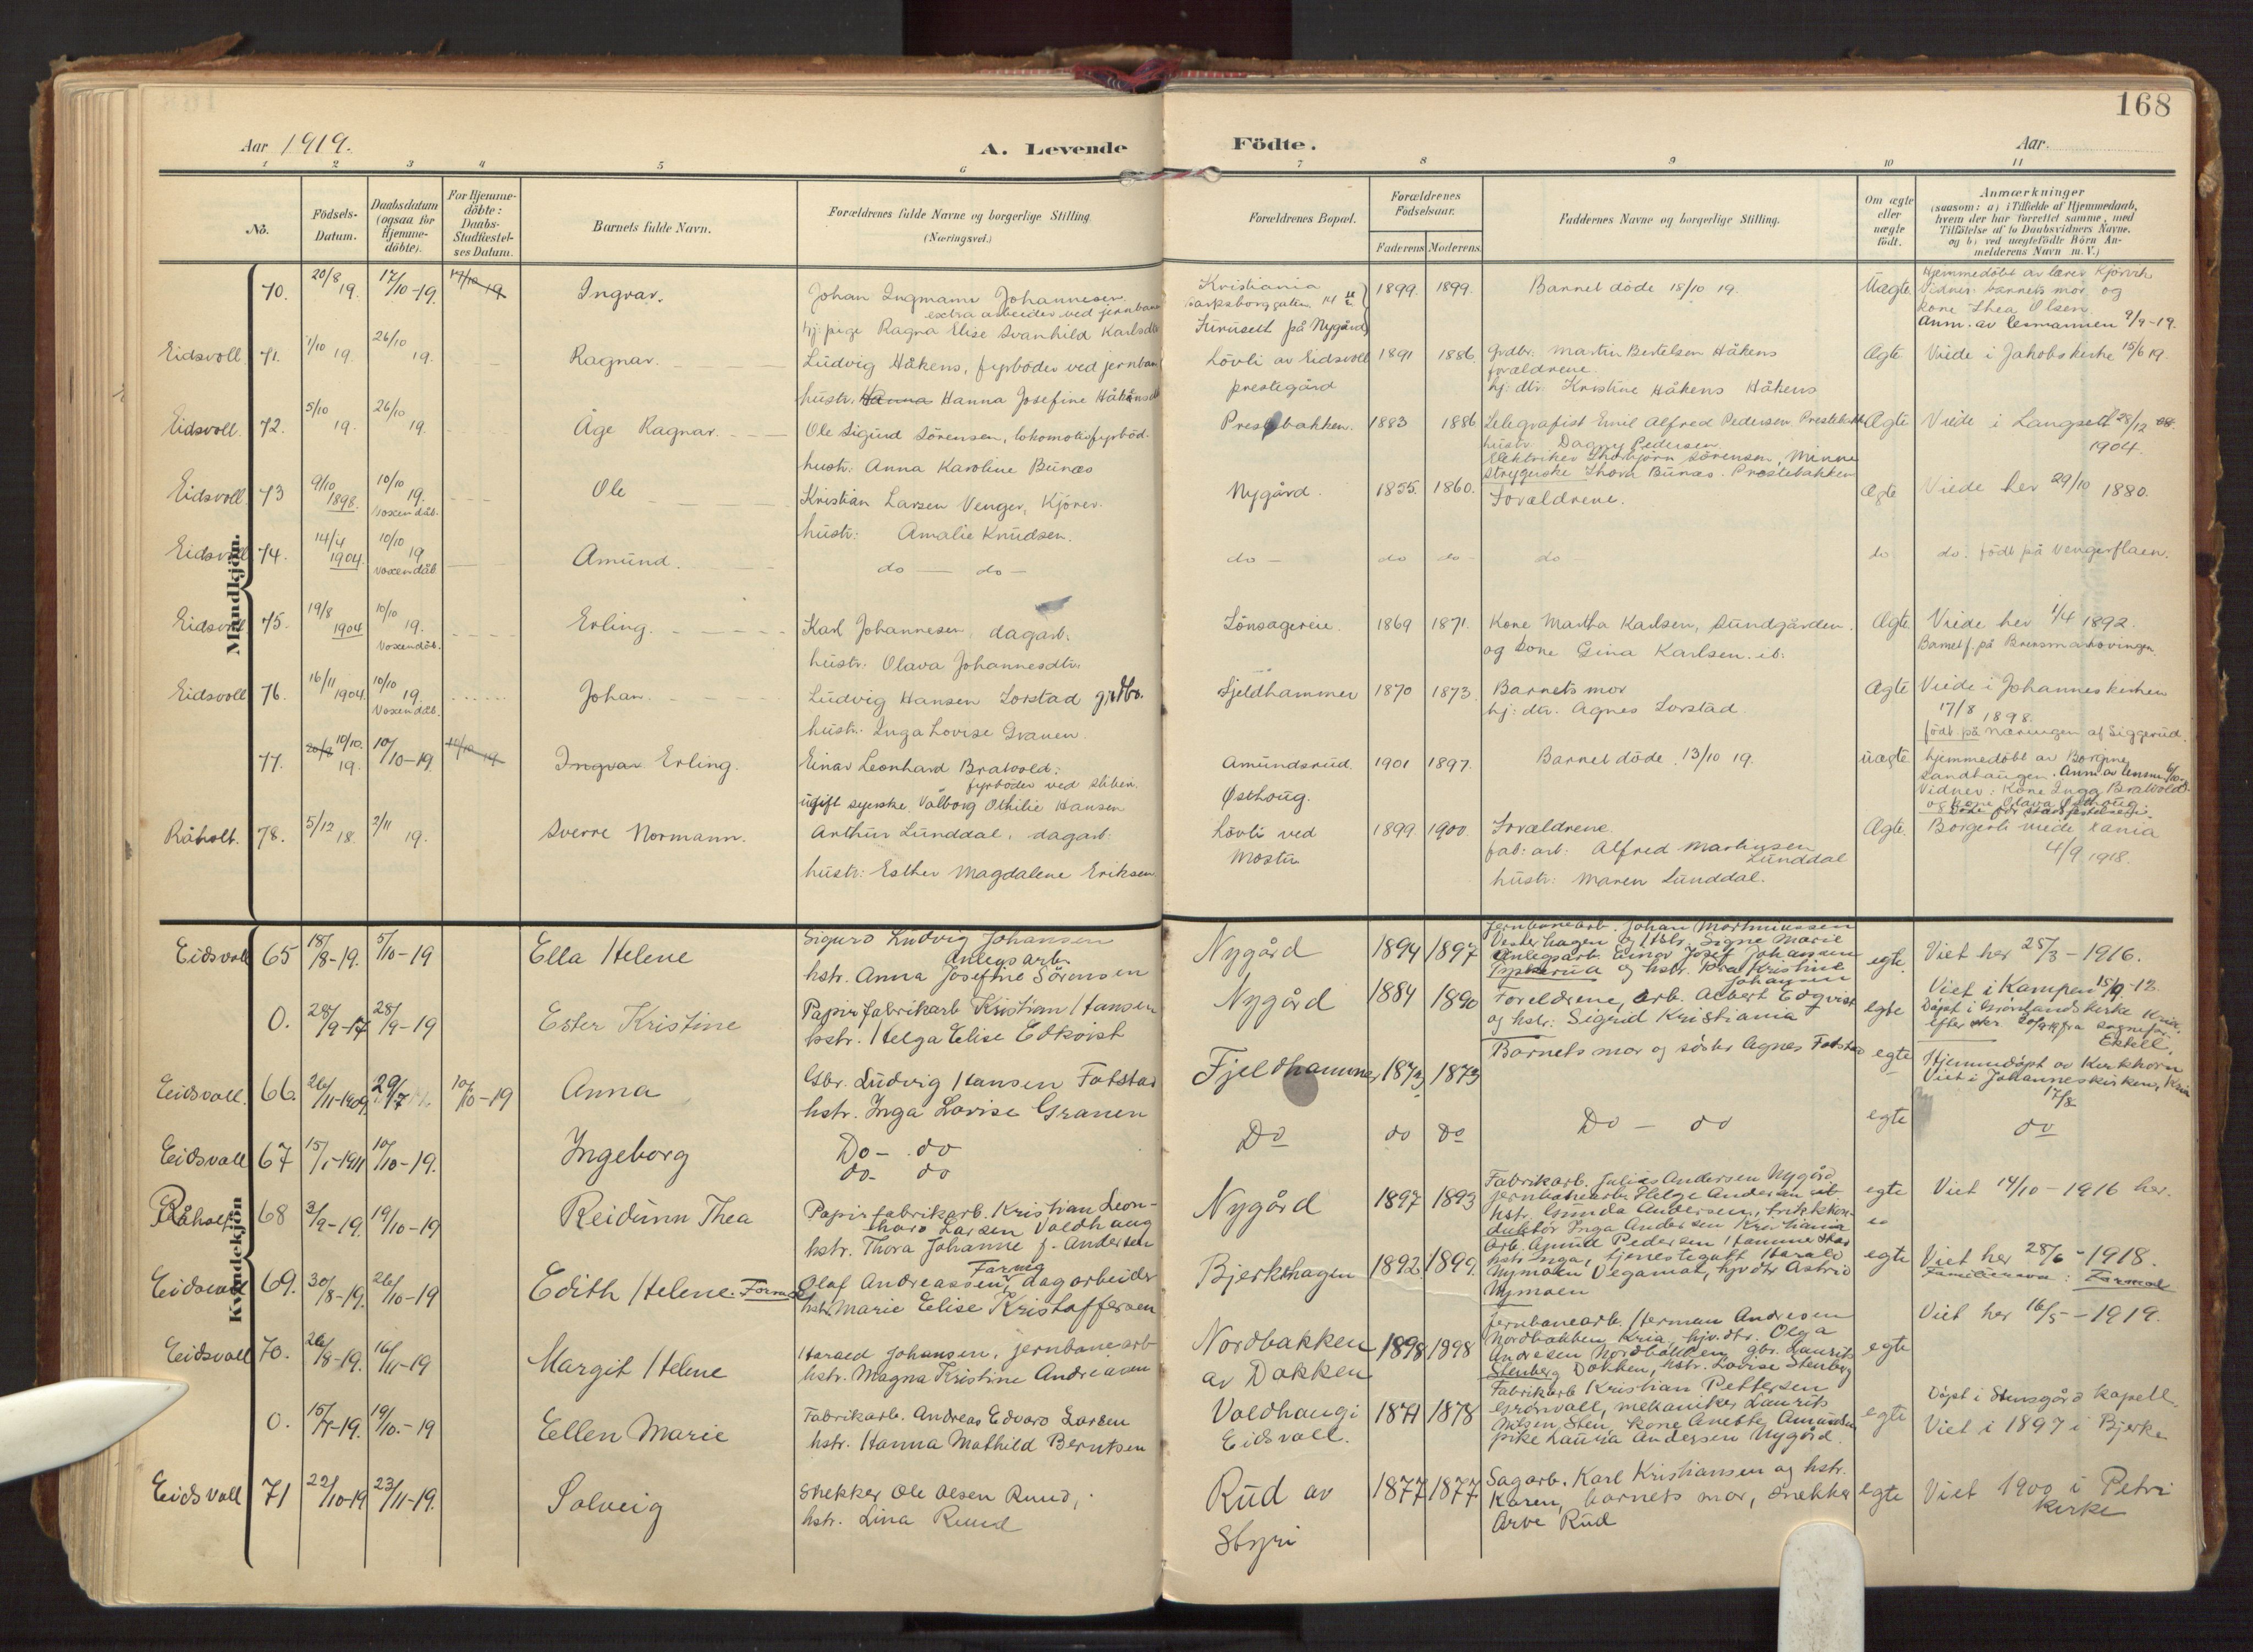 168
Aar 1919.
A. Levende
Födte.
Aar
1 2 3 4 5 6 7 8 9 10 11
No.
Födsels-Datum.
Daabsdatum (ogsaa for Hjemme-döbte).
For Hjemme-döbte: Daabs-Stadfæstel-ses Datum.
Barnets fulde Navn.
Forældrenes fulde Navne og borgerlige Stilling
(Næringsvei.)
Forældrenes Bopæl.
Forældrenes Födselsaar.
Faderens Moderens.
Faddernes Navne og borgerlige Stilling.
Om ægte eller uægte födt.
Anmærkninger
(saasom: a) i Tilfælde af Hjemmedaab, hvem der har forrettet samme, med Tilföielse af to Daabsvidners Navne, og b) ved uægtefödte Börn An-melderens Navn m. V.)
Mandkjön.
70. 20/8 19. 17/10-19. 17/10 19 Ingvar. Johan Ingmann Johannesen, Kristiania 1899. 1899. Barnet döde 18/10 19. Uægte Hjemmedöbt av lærer
extra arbeider ved jernbane Vidner: barnets mor og
hj: pige Ragna Elise Svanhild Furuset på Nygård kone Thea Olsen
Anm. av lensmannen 9/9-19.
Eidsvoll 71. 1/10 19. 26/10 19. Ragnar. Ludvig Håkens, fyrböder ved Lövli av Eidsvoll 1891 1886. Grdbr. Martin Bertelsen Håkens Ægte Viede i Jakobs kirke 15/6 19.
prestegård forældrene.
hustr. Hanna Hanna Josefine hj: dtr. Kristine Håkens Håkens
Eidsvoll. 72. 5/10 19. 26/10 19. Åge Ragnar. Ole Sigurd Sörensen, lokomotivfyrböd. Prestebakken. 1883 1886 Telegrafist Emil Alfred Pedersen Ægte Viede i Langset 28/12
hustr. Dagny Pedersen 1904.
hustr: Anna Karoline Bunæs Elektriker Thorbjörn Sörensen, Minne
Strygerske Thora Bunæs. Prestebakken
Eidsvoll 73 9/10 1898. 10/10 19. Voxendåb. Ole Kristian Larsen Venger, Kjörer. Nygård. 1855. 1860. Forældrene. Ægte Viede her 29/10 1880.
hustr: Amalie Knudsen.
Eidsvoll 74. 14/4 1904. 10/10 19 Voxendåb. Amund. do — do — do — do do — do — do do. födt på Vengerflaen.
Eidsvoll 75. 19/8 1904 10/10 19. Voxendåb. Erling. Karl Johannesen, dagarb. 1869 1871. Kone Martha Karlsen, Sundgården. Ægte Viede her 1/4 1892.
hustr. Olava Johannesdtr. og Kone Gina Karlsen. ib.
Eidsvoll 76. 16/11 1904. 10/10 19. Voxendåb. Johan. Ludvig Hansen grdbr. Fjeldhammer 1870 1873. Barnets mor Ægte Viede i Johanneskirken
hustr. Inga Lovise Granen. hj: dtr. Agnes 17/8 1898.
födt på Næringen af Siggerud.
77. 10/10. 19. 10/10-19. Ingvar Erling. Einar Leonhard Bratvold: Amundsrud. 1901 1897. Barnet döde 13/10 19. uægte hjemmedöbt av
fyrböder ved Østhoug. Sandhaugen. Anm av
ugift syerske Valborg Othilie Hansen Vidner: Kone Inga Bratvold
og Kone Olava Østhoug.
Råholt. 78. 5/12 18. 2/11 19. Sverre Normann. Arthur Lunddal, dagarb. Lövli ved 1899 1900. Forældrene. Ægte. Borgerli viede Kania
fab: arb. Alfred Markusen Lunddal 4/9 1918.
hustr: Esther Magdalene Eriksen. hustr: Maren Lunddal.
Kvindekjön
Eidsvoll 65 18/8-19. 5/10-19 Ella Helene Sigurd Ludvig Johansen Nygård 1894 1897 Jernbanearb. Johan egte. Viet her 25/3-1916.
Anlegsarb. og hstr. Signe Marie
hstr. Anna Josefine Sörensen Anlegsarb. Einar Josef Johansen
og hstr. Kristine Johansen
0. 28/9-17 28/9-19 Ester Kristine Papirfabrikarb Kristian Hansen Nygård 1884 1890 Foreldrene, arb. Albert Edqvist egte Viet i Kampen 15/9-12
hstr. Helga Elise Edkvist og hstr: Sigrid Kristiania Döpt i Grönlandskirke Kria.
Eidsvoll. 66. 26/11-1909 29/7 10/10-19 Anna Gbr. Ludvig Hansen Fjeldhammer 1873 Barnets mor og söster Agnes egte Hjemmedöpt av
hstr. Inga Lovise Granen Viet i Johanneskirken, Kria
17/8
Eidsvoll 67 15/1-1911 10/10-19. Ingeborg Do — do Do do do Do — do egte do
do- do
Råholt 68 3/9-19. 19/10-19 Reidunn Thea Papirfabrikarb. Kristian Leon- Nygård 1897 1893 Fabrikarb. Julius Andersen Nygård egte Viet 14/10-1916 her.
hard Larsen Voldhaug jernbanearb. Helge Andersen ib.
hstr. Thora Johanne f. Andersen hstr. Gunda Andersen, trikkkon-
duktör Inga Andersen Kristiania
Eidsvoll 69. 30/8-19. 26/10-19 Edith Helene Olaf Andreassen, dagarbeider Bjerkehagen 1892 1899. Arb. Amund Pedersen egte Viet her 28/6-1918.
hstr. Marie Elise Kristoffersen hstr Inga, tjenestegutt Harald Familienavn:
Nymoen Vegamot, hjv dtr Astrid
Nymoen
Eidsvoll 70. 26/8-19. 16/11-19 Margit Helene Harald Johansen, jernbanearb Nordbakken 1898 1898 Jernbanearb. Herman Andresen egte Viet her 16/5-1919.
hstr. Magna Kristine Andreasen av Dokken Nordbakken Kria, hjv. dtr. Olga
Andresen Nordbakken gbr. Laurits
Stenberg Dokken, hstr. Lovise Stenberg
0. 15/7-19. 19/10-19 Ellen Marie Fabrikarb. Andreas Edvard Larsen Voldhaug i 1871 1878 Fabrikarb Kristian Pettersen egte Döpt i Stensgård kapell.
hstr. Hanna Mathild Berntsen Eidsvoll. Grönvoll, mekaniker Laurits Viet i 1897 i Bjerke
Nilsen, Sten kone Anette Amundsen
pike Laura Andersen Nygård.
Eidsvoll 71 22/10-19 23/11-19. Solveig Snekker Ole Olsen Ruud, Rud av 1877 1877 Sagarb. Karl Kristiansen og hstr. egte Viet 1900 i Petri
hstr. Lina Ruud Styri Karen, barnets mor, snekker kirke
Arve Rud